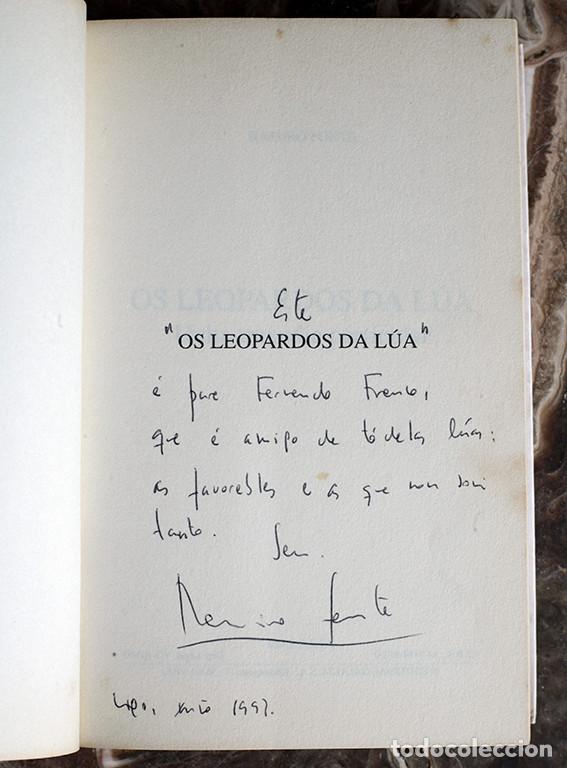 Este
"OS LEOPARDOS DA LÚA"
é para Fernando Franco,
que é amigo de tódalas lúas:
as favorables e as que non son
tanto. Seu.
Ramiro Fonte
Vigo, 1993.
todocoleccion